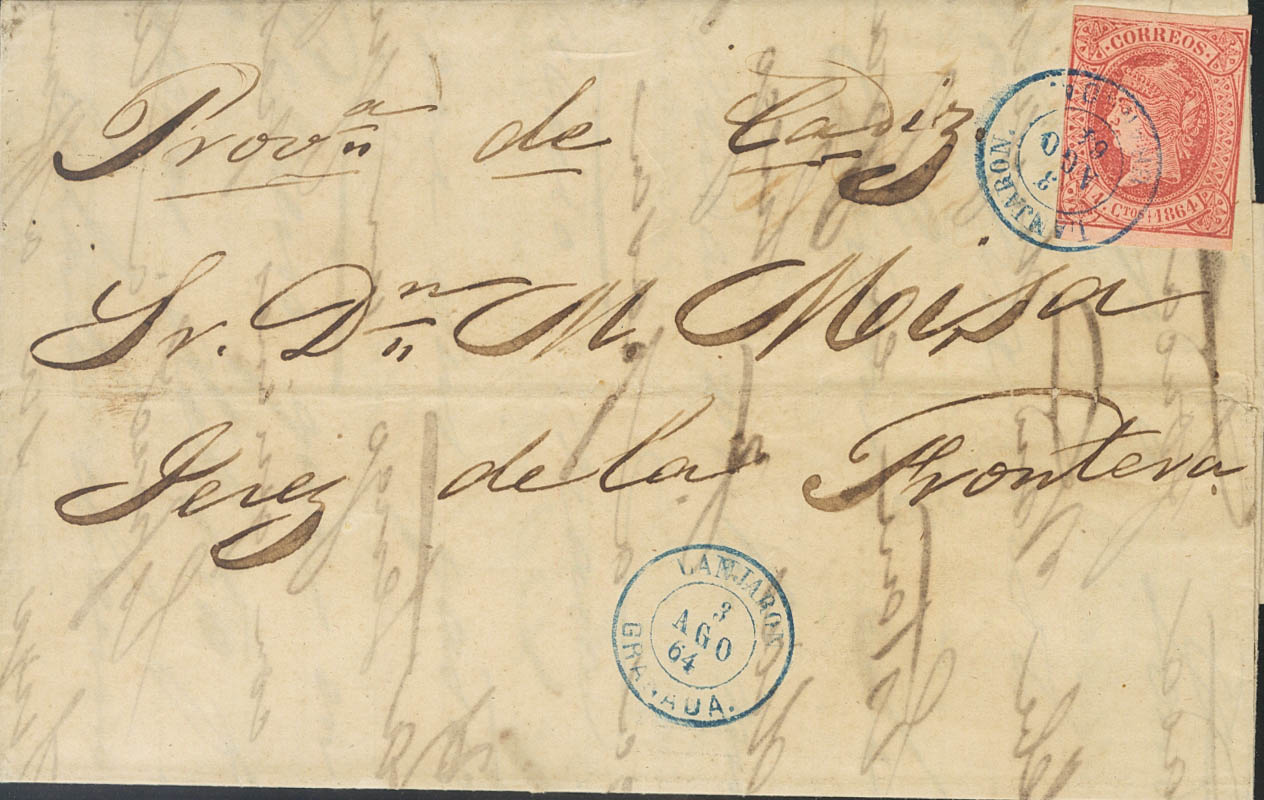 Prov.ª de Cadiz.
CORREOS.
LANJARON.
3
AGO
64
4 CTOS 1864
Sr. Dn M. Meisa
Jerez de la Frontera
LANJARON
3
AGO
64
GRANADA.